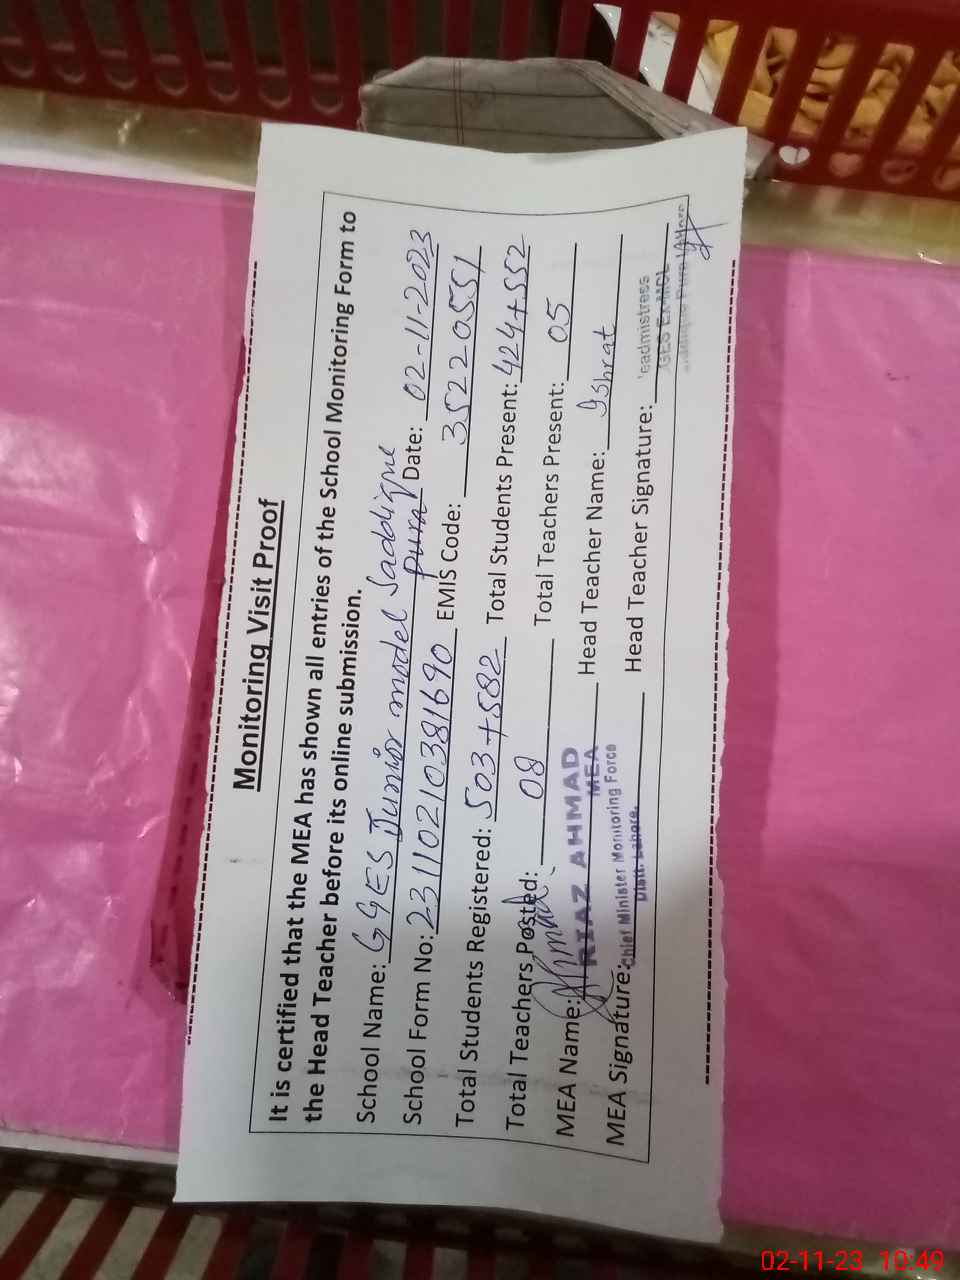 Monitoring Visit Proof
It is certified that the MEA has shown all entries of the School Monitoring Form to
the Head Teacher before its online submission.
School Name: GGES Junior model Saddique
pura Date: 02-11-2023
School Form No: 23110210381690 EMIS Code: 35220551
Total Students Registered: 503+582 Total Students Present: 424+552
Total Teachers Posted: 08 Total Teachers Present: 05
MEA Name: Ahmad Head Teacher Name: Ishrat
RIAZ AHMAD
MEA
MEA Signature: Head Teacher Signature:
Chief Minister Monitoring Force
Distt. Lahore.
eadmistress
GES Ex-MCL
Siddique Pura Lahore
02-11-23 10:49